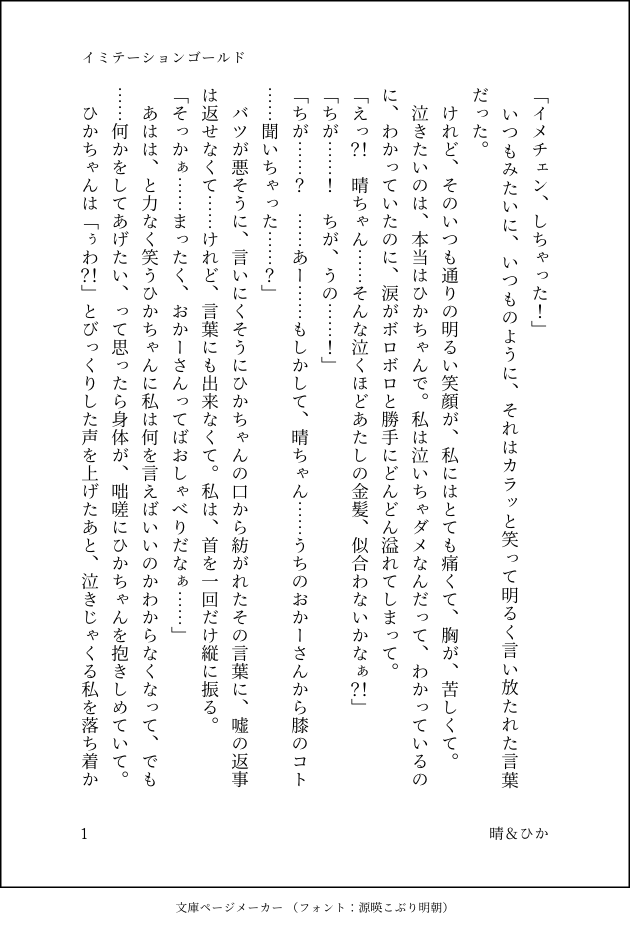 イミテーションゴールド
「イメチェン、しちゃった！」
　いつもみたいに、いつものように、それはカラッと笑って明るく言い放たれた言葉
だった。
　けれど、そのいつも通りの明るい笑顔が、私にはとても痛くて、胸が、苦しくて。
　泣きたいのは、本当はひかちゃんで。私は泣いちゃダメなんだって、わかっているの
に、わかっていたのに、涙がボロボロと勝手にどんどん溢れてしまって。
「えっ?!　晴ちゃん……そんな泣くほどあたしの金髪、似合わないかなぁ?!」
「ちが……！　ちが、うの……！」
「ちが……？　……あー……もしかして、晴ちゃん……うちのおかーさんから膝のコト
……聞いちゃった……？」
　バツが悪そうに、言いにくそうにひかちゃんの口から紡がれたその言葉に、嘘の返事
は返せなくて……けれど、言葉にも出来なくて。私は、首を一回だけ縦に振る。
「そっかぁ……まったく、おかーさんってばおしゃべりだなぁ……」
　あはは、と力なく笑うひかちゃんに私は何を言えばいいのかわからなくなって、でも
……何かをしてあげたい、って思ったら身体が、咄嗟にひかちゃんを抱きしめていて。
　ひかちゃんは「ぅわ?!」とびっくりした声を上げたあと、泣きじゃくる私を落ち着か
1
晴＆ひか
文庫ページメーカー（フォント：源暎こぶり明朝）